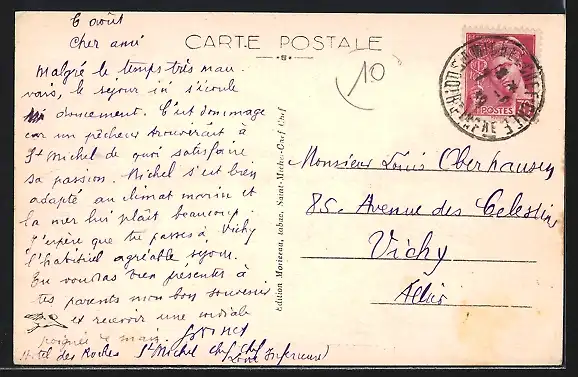 6 août
Cher ami
Malgré le temps très mau-
vais, le séjour ici s'écoule
doucement. C'est dommage
car un pêcheur trouverait à
St Michel de quoi satisfaire
sa passion. Michel s'est bien
adapté au climat marin et
la mer lui plaît beaucoup.
J'espère que tu passes à Vichy
l'habituel agréable séjour.
Tu voudras bien présenter à
tes parents mon bon souvenir
et recevoir une cordiale
poignée de main.
Hotel des Roches St Michel Chef Chef
(Loire Inférieure)
CARTE POSTALE
10
POSTES
Edition Morizeau, tabac, Saint-Michel-Chef-Chef
Monsieur Louis Oberhausen
85. Avenue des Celestins
Vichy
Allier